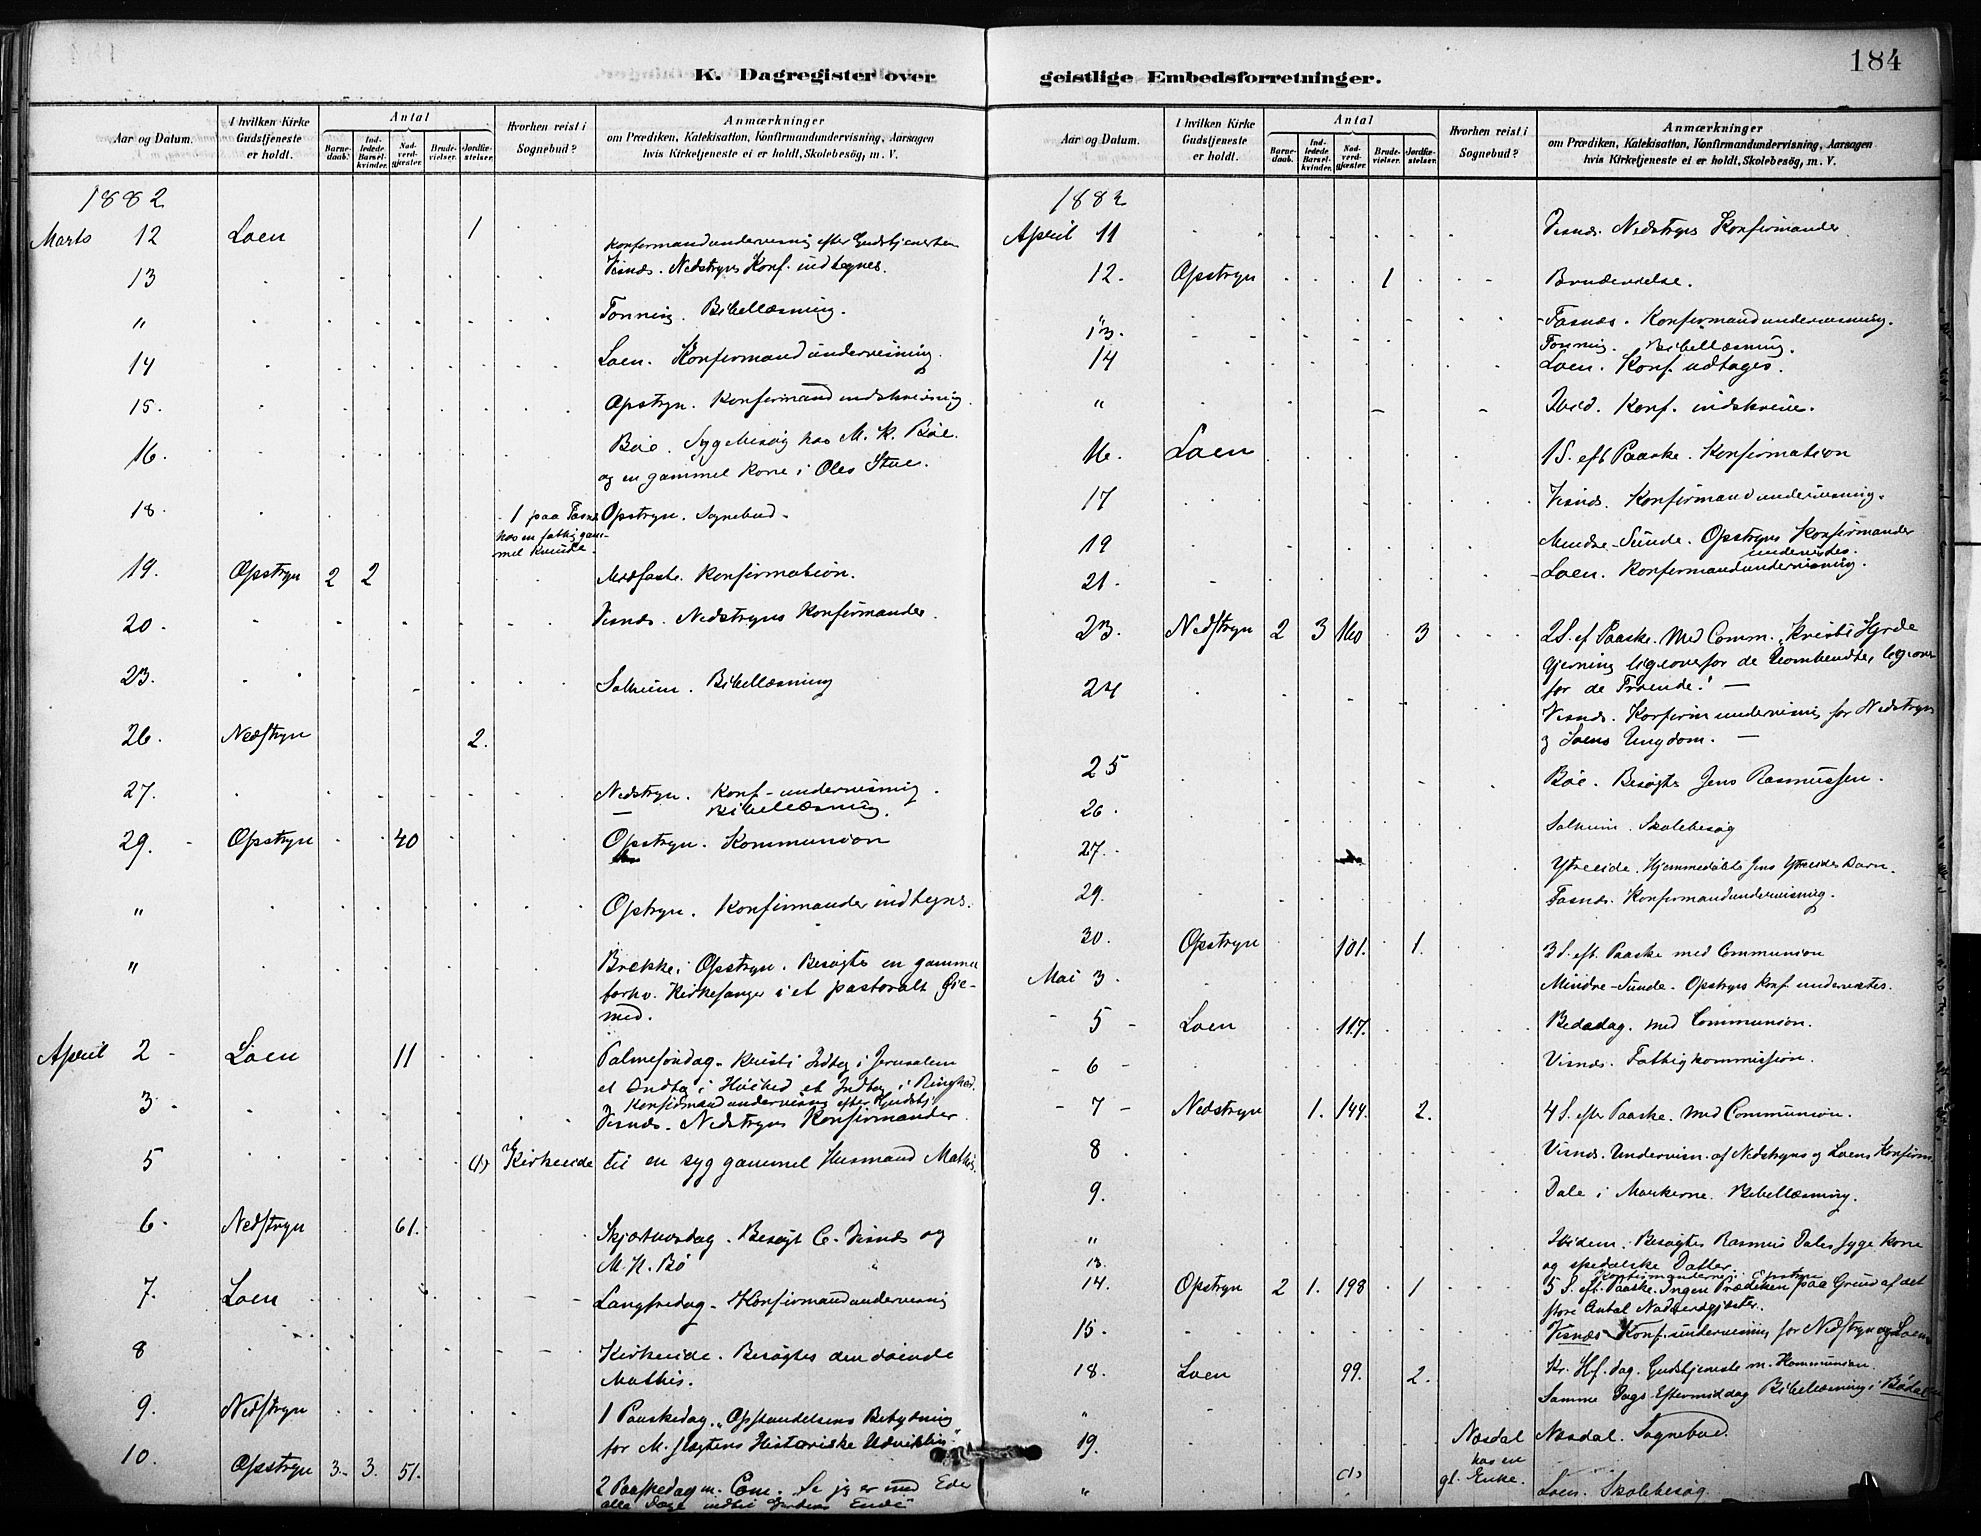 184
K. Dagregister over
Aar og Datum.
I hvilken Kirke Gudstjeneste er holdt.
Antal
Barne-daab.
Ind-ledede Barsel-kvinder.
Nad-verd-gjester.
Brude-vielser.
Jordfæ-stelser.
Hvorhen reist i Sognebud?
Anmærkninger
om Prædiken, Katekisation, Konfirmandundervisning, Aarsagen
hvis Kirketjeneste ei er holdt, Skolebesøg, m. V.
1882
Marts 12 Loen 1 Konfirmandundervisning efter Gudstjenesten
13 Visnæs. Nedstryns Konf. indtegnes.
" Tonning. Bibellæsning.
14 Loen. Konfirmandundervisning.
15. Opstryn. Konfirmandindskrivning.
16. Bøe. Sygebesøg hos M. K. Bøe.
og en gammel Kone i Oles Stue.
18. 1 paa Fasnæs Opstryn. Sognebud.
hos en fattig gam-
mel Kvinde.
19. Opstryn 2 2 Midfaste. Konfirmation.
20. Visnæs. Nedstryns Konfirmander.
23. Solheim. Bibellæsning
26. Nedstryn 2.
27. Nedstryn. Konf-undervisning.
— Bibellæsning.
29. Opstryn 40 Opstryn. Kommunion
" Opstryn. Konfirmander indtegnes.
" Brække i Opstryn. Besøgte en gammel
forhv. Kirkesanger i et pastoralt Øie-
med.
April 2 Loen 11 Palmesøndag. Kristi Indtog i Jerusalem
et Indtog i et Indtog i
Konfirmandundervisning efter Gudstj.
3 Visnæs. Nedstryns Konfirmander
5 (1) Kirkeeide til en syg gammel Husmand Mathis.
6. Nedstryn 61. Skjærtorsdag. Besøgt C. Visnæs og
M. K. Bø
7. Loen Langfredag. Konfirmandundervisning
8 Kirkeeide. Besøgtes den døende
Mathis.
9. Nedstryn 1 Paaskedag. "Opstandelsens Betydning
for M. slægtens Historiske Udvikling."
10. Opstryn 3. 3. 51. 2 Paaskedag m. Com. Se jeg er med Eder
alle Dage indtil Verdens Ende
geistlige Embedsforretninger.
Aar og Datum.
I hvilken Kirke Gudstjeneste er holdt.
Antal
Barne-daab.
Ind-ledede Barsel-kvinder.
Nad-verd-gjester.
Brude-vielser.
Jordfæ-stelser.
Hvorhen reist i Sognebud?
Anmærkninger
om Prædiken, Katekisation, Konfirmandundervisning, Aarsagen
hvis Kirketjeneste ei er holdt, Skolebesøg, m. V.
1882
April 11 Visnæs. Nedstryns Konfirmander.
12. Opstryn 1 Brudevielse.
" Fasnæs. Konfirmandundervisning.
13. Tonning. Bibellæsning.
14 Loen. Konf. udtages.
" Konf. indskrives.
16. Loen 1 S. eft Paaske. Konfirmation
17 Visnæs. Konfirmandundervisning.
19 Mindre-Sunde. Opstryns Konfirmander
undervistes.
21. Loen. Konfirmandundervisning.
23. Nedstryn 2 3 160 3 2 S. ef Paaske. Med Comm. "Kristi Hyrde
Gjerning ligeoverfor de Uomvendte, ligeover
for de Troende." —
24 Visnæs. Konfirm undervisning for Nedstryns
og Loens Ungdom. —
25 Bøe. Besøgte Jens Rasmussen.
26. Solheim. Skolebesøg
27. Ytreeide. Hjemmedøbte Jens Ytreeides Barn.
29. Fasnæs. Konfirmandundervisning.
30. Opstryn 101. 1. 3 S. eft. Paaske med Communion
Mai 3. Mindre-Sunde. Opstryns Konf undervistes.
5 Loen 117. Bededag. med Communion.
6 Visnæs. Fattigkommission.
7 Nedstryn 1. 144. 2. 4 S. efter Paaske. Med Communion.
8 Visnæs. Undervisn. af Nedstryns og Loens Konfirm.
9. Dale i Markerne. Bibellæsning.
" Ibidem. Besøgtes Rasmus Dales syge Kone
og spedalske Datter.
13. Konfirmanderne i Opstryn
14. Opstryn 2 1. 198 1 5 S. eft. Paaske. Ingen Prædiken paa Grund af det
store Antal Nadverdgjester.
15. Visnæs Konf. undervisning for Nedstryn og Loen
18. Loen 99. 2. Kr. Hf. dag. Gudstjeneste m. Kommunion.
" Samme Dags Eftermiddag Bibellæsning i Bødal
19. (1) Næsdal Næsdal. Sognebud.
hos en
gl. Enke.
" Loen. Skolebesøg.